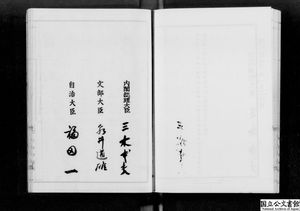 内閣総理大臣 三木武夫
文部大臣 永井道雄
自治大臣 福田一
国立公文書館
National Archives of Japan